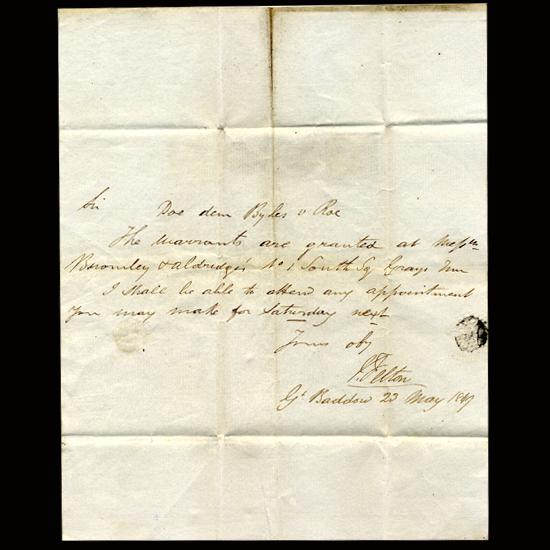 Sir Doe dem Byles v Roe
The warrants are granted at Messrs
Bromley & Aldridge's No 1 South Sq Grays Inn
I shall be able to attend any appointment
you may make for Saturday next
Yours oby
J. Felton
Gt Baddow 23 May